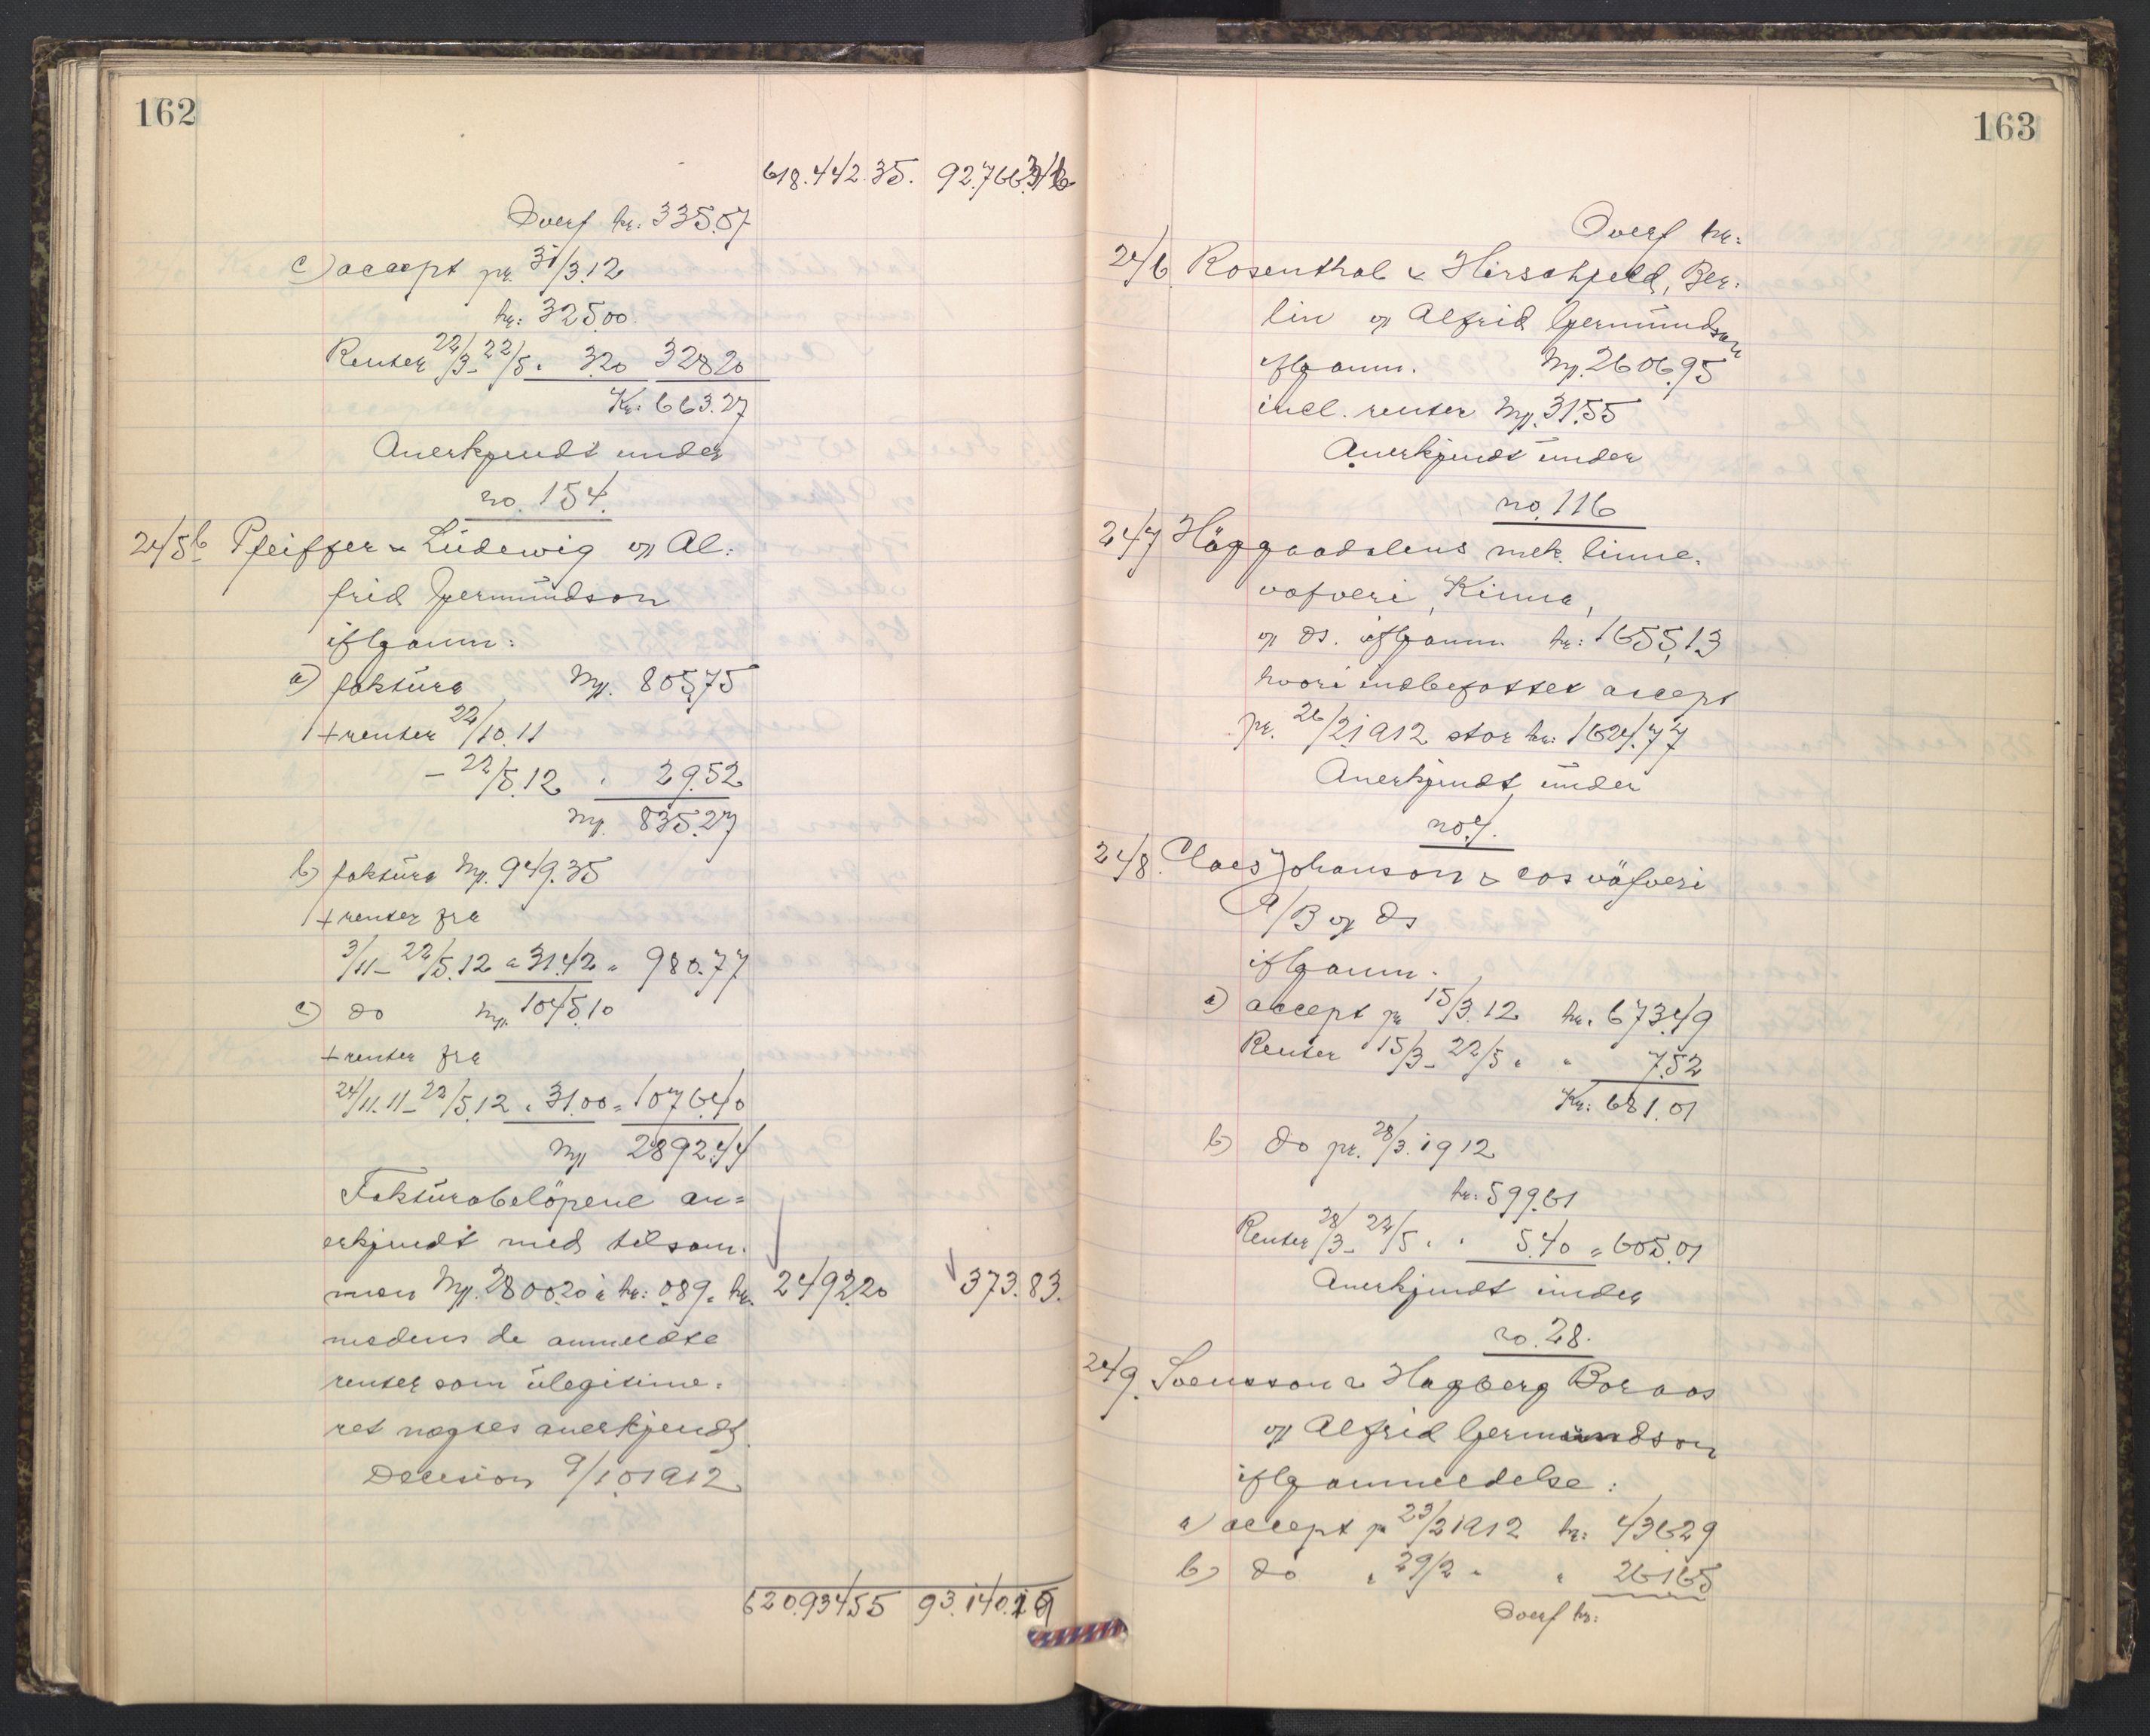 162
618.442.35. 92.766.36
Overf kr: 335.07
c) accept pr. 31/3.12
kr: 325.00
Renter 22/3-22/5 " 3.20 328.20
Kr: 663.27
Anerkjendt under
no. 154.
245b Pfeiffer & Lüdewig og Al-
frid Germundson
iflg anm:
a) faktura Mk. 805.75
+ renter 22/10.11
- 22/5.12 " 29.52
Mk. 835.27
b) faktura Mk. 949.35
+ renter fra
3/11-22/5.12 " 31.42 = 980.77
c) do Mk. 1045.10
+ renter fra
24/11.11-22/5.12 " 31.00 = 1076.40
Mk 2892.44
Fakturabelöpene an=
erkjendt med tilsam-
men Mk. 2800.20 à kr: 0.89 = kr. 2492.20 373.83.
medens de anmeldte
renter som ulegitime-
ret nægtes anerkjendt.
Decision 9/10 1912
620.934.55 93.140.19
163
Overf kr:
246 Rosenthal & Hirschfeld, Ber-
lin og Alfrid Germundson
iflg anm. Mk. 2606.95
incl. renter Mk. 31.55
Anerkjendt under
no. 116
247 Häggaadalens mek. linne-
väfveri, Kinna,
og ds. iflg anm kr: 1655.13
hvori indbefattet accept
pr. 26/2 1912 stor kr: 1624.77
Anerkjendt under
no 7.
248. Claes Johanson & cos väfveri
A/B og ds
iflg anm.
a) accept pr 15/3.12 kr. 673.49
Renter 15/3-22/5 " " 7.52
Kr: 681.01
b) do pr. 28/3.1912
kr: 599.61
Renter 28/3-22/5 " " 5.40 = 605.01
Anerkjendt under
no. 28.
249. Svensson & Hagberg Boraas
og Alfrid Germundson
iflg anmeldelse:
a) accept pr 23/2 1912 kr: 436.29
b) do " 29/2 " " 261.65
Overf kr: